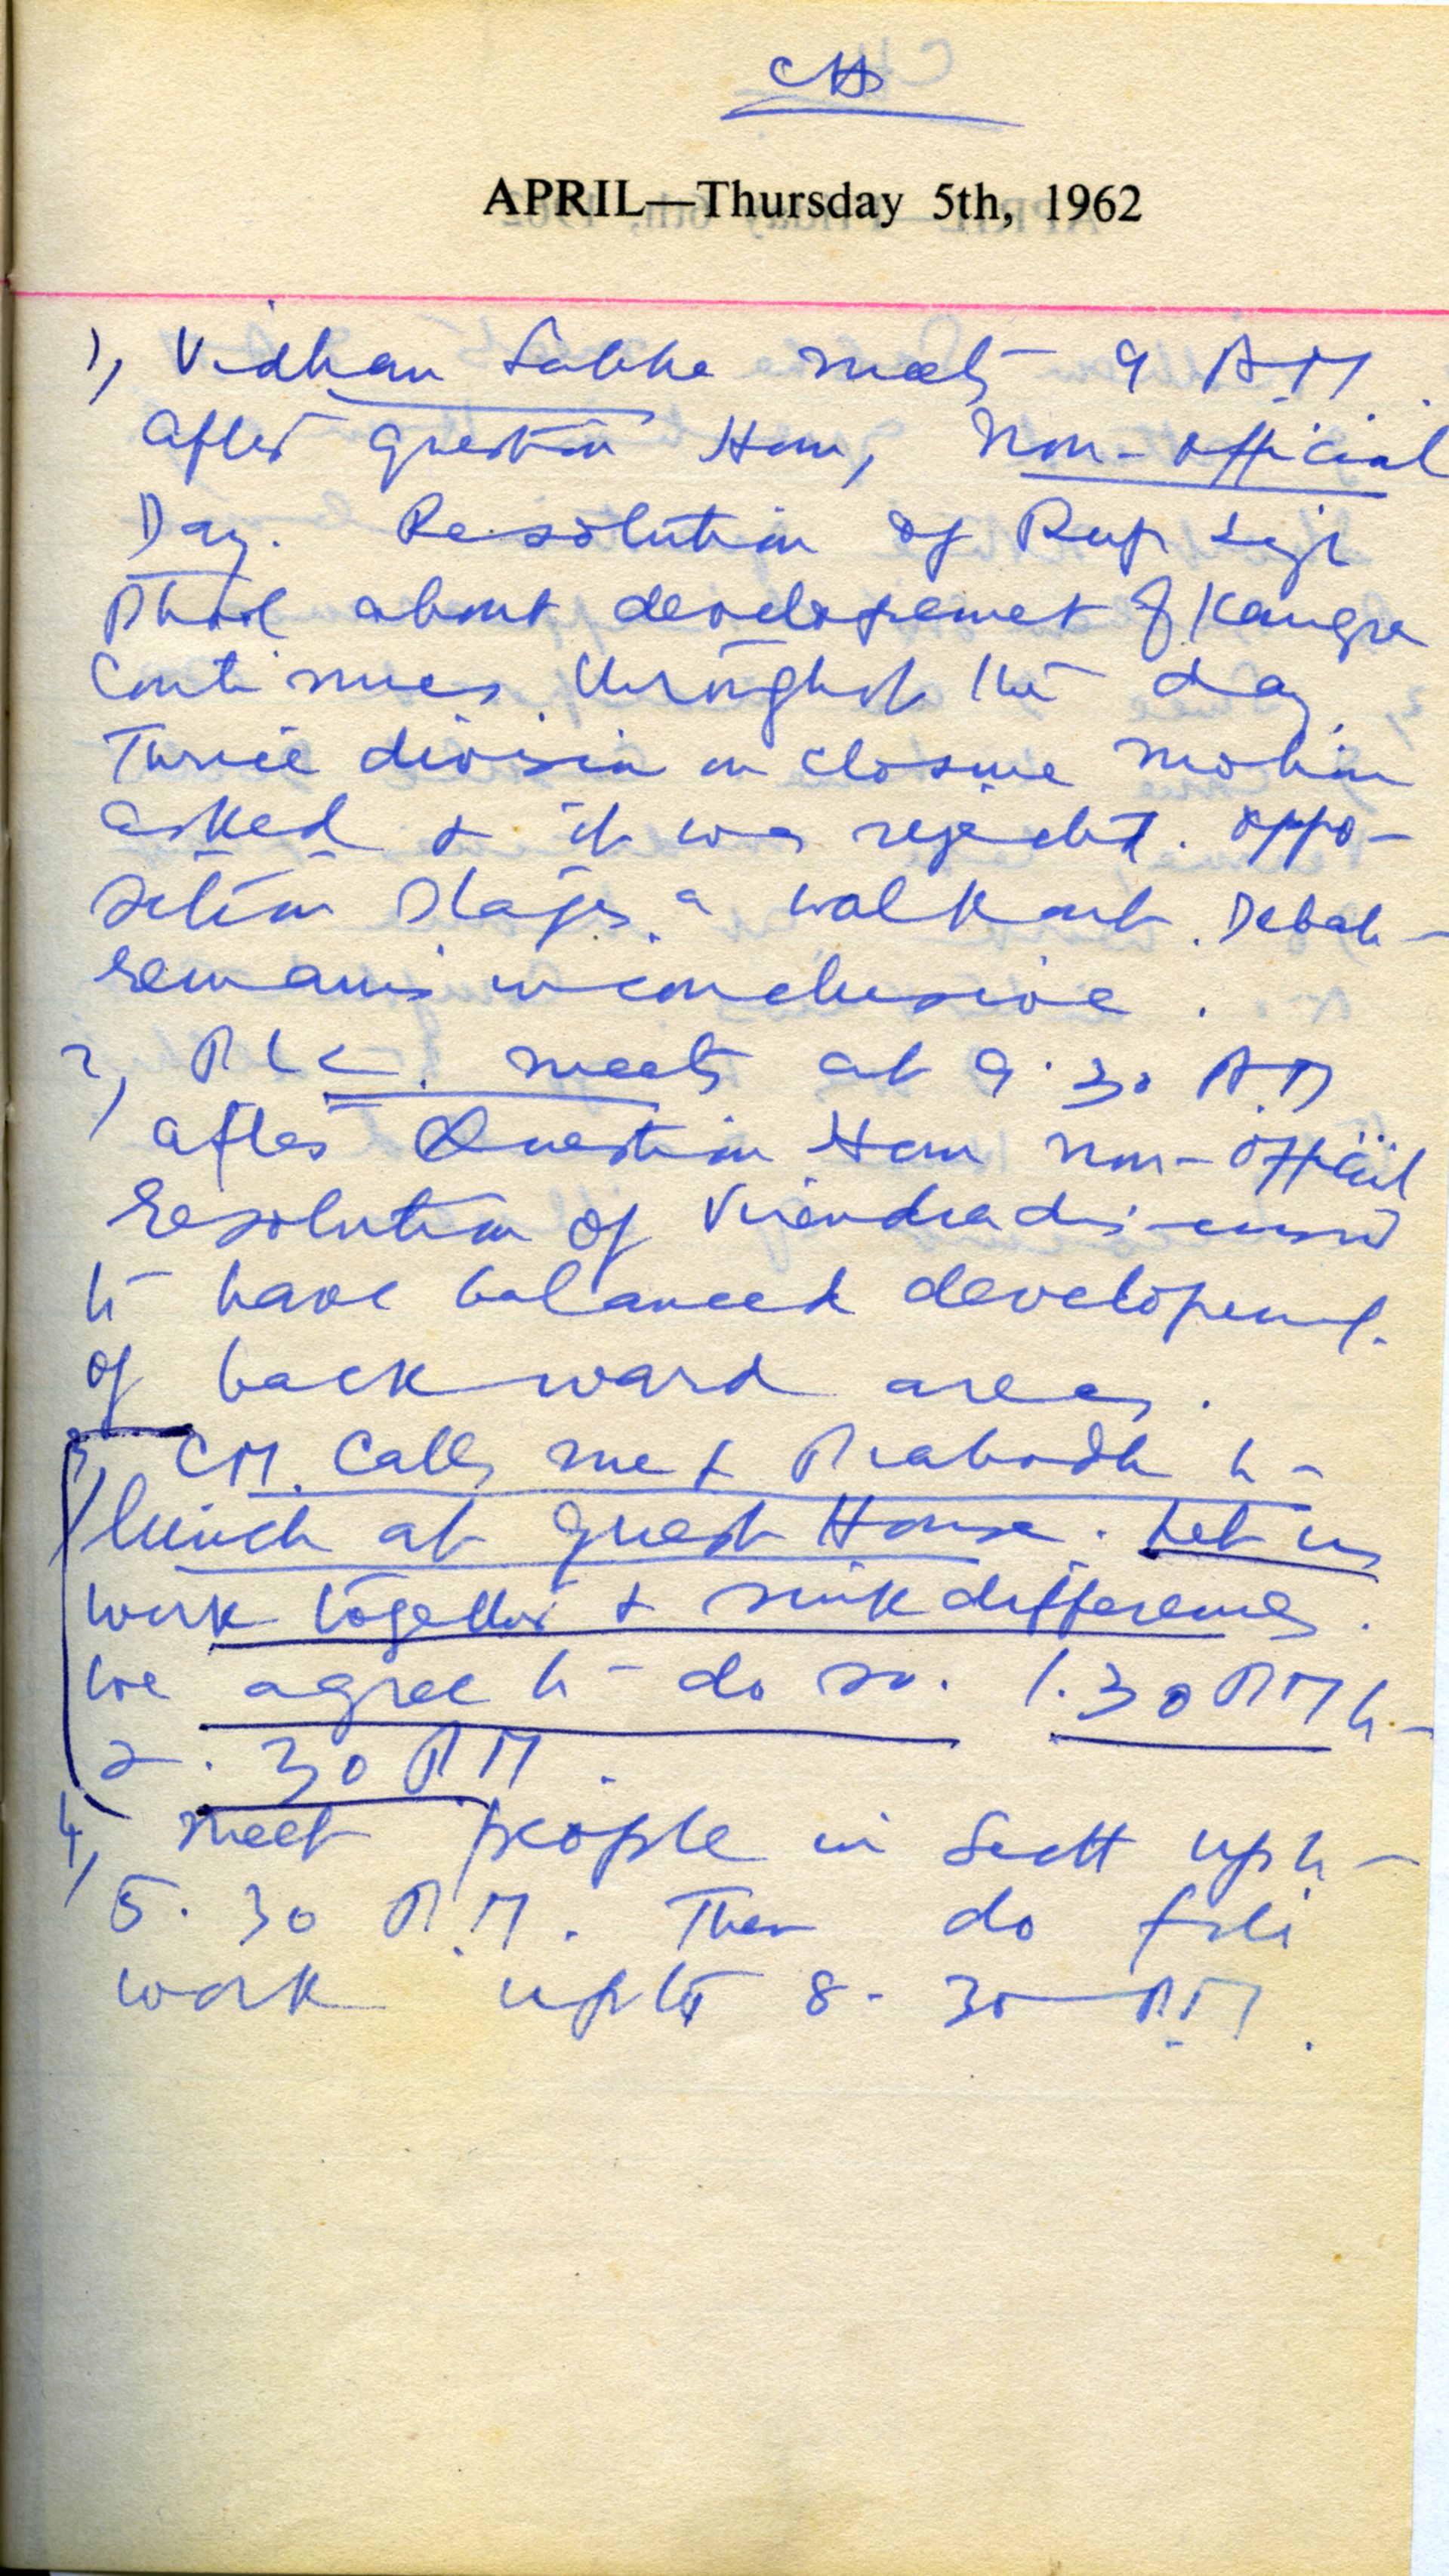 CH
APRIL—Thursday 5th, 1962
1, Vidhan Sabha meets 9 AM.
after question Hour, Non-official
Day. Resolution of Rup Singh
Phul about developement of Kangra
Continues throughout the day.
Twice division on closure motion
asked & it was rejected. Oppo-
sition stages a walkout. Debate
remains inconclusive.
2, PLC. meets at 9.30 AM
after Question Hour non-official
resolution of Virendra discussed
to have balanced development
of backward areas.
3, CM. Calls me & Prabodh to
lunch at guest House. Let us
work together & sink differences.
We agree to do so. 1.30 PM to
2.30 PM.
4, Meet people in Sectt upto
5.30 P.M. Then do file
work upto 8-30 P.M.